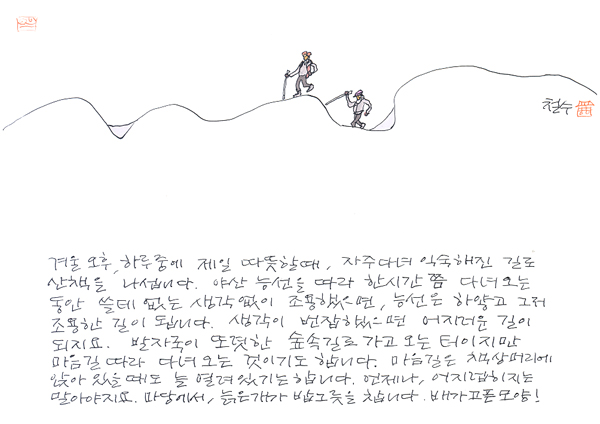 철수
겨울 오후, 하루중에 제일 따뜻할 때, 자주다녀 익숙해진 길로
산책을 나섭니다. 야산 능선을 따라 한시간 쯤 다녀오는
동안 쓸데 없는 생각없이 조용했으면, 능선은 하얗고 그저
조용한 길이 됩니다. 생각이 번잡했으면 어지러운 길이
되지요. 발자국이 또렷한 숲속길로 가고 오는 터이지만
마음길 따라 다녀 오는 것이기도 합니다. 마음길은 책상머리에
앉아 있을 때도 늘 열려있기는 합니다. 언제나, 어지럽히지는
말아야지요. 마당에서, 늙은개가 밥그릇을 찹니다. 배가고픈모양!